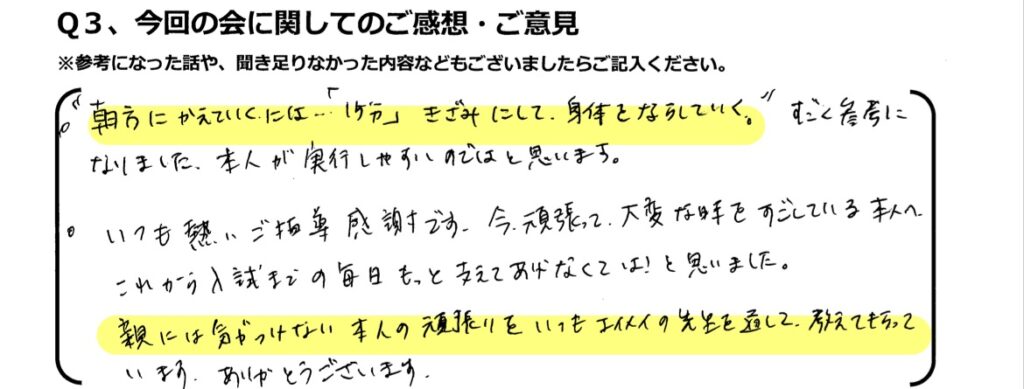 Q３、今回の会に関してのご感想・ご意見
※参考になった話や、聞き足りなかった内容などもございましたらご記入ください。
。"朝方にかえていくには…「15分」きざみにして、身体をならしていく。" すごく参考に
なりました、本人が実行しやすいのではと思います。
。いつも熱いご指導感謝です。今、頑張って、大変な時をすごしている本人へ、
これから入試までの毎日もっと支えてあげなくては！と思いました。
親には気がつけない本人の頑張りをいつもエイメイの先生を通して、教えてもらって
います、ありがとうございます。